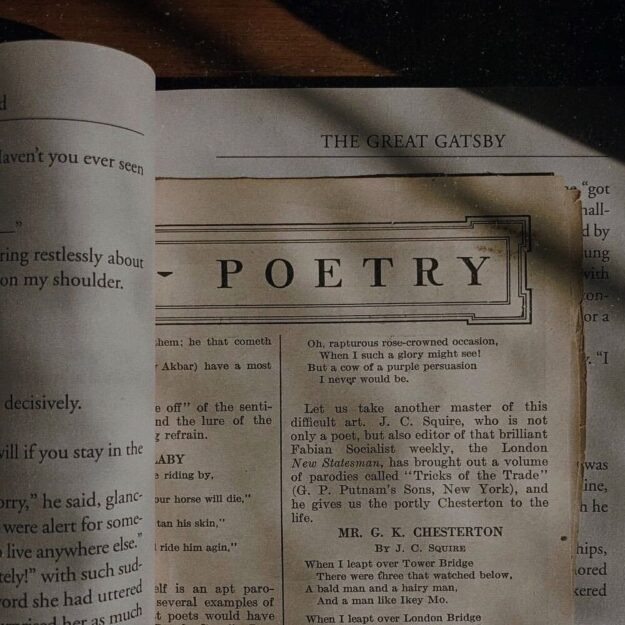 d
Haven't you ever seen
—"
ring restlessly about
on my shoulder.
decisively.
will if you stay in the
orry," he said, glanc-
were alert for some-
live anywhere else."
tely!" with such sud-
word she had uttered
her as much
THE GREAT GATSBY
POETRY
them; he that cometh
Akbar) have a most
e off" of the senti-
nd the lure of the
g refrain.
LABY
e riding by,
our horse will die,"
tan his skin,"
l ride him agin,"
elf is an apt paro-
several examples of
t poets would have
Oh, rapturous rose-crowned occasion,
When I such a glory might see!
But a cow of a purple persuasion
I never would be.
Let us take another master of this
difficult art. J. C. Squire, who is not
only a poet, but also editor of that brilliant
Fabian Socialist weekly, the London
New Statesman, has brought out a volume
of parodies called "Tricks of the Trade"
(G. P. Putnam's Sons, New York), and
he gives us the portly Chesterton to the
life.
MR. G. K. CHESTERTON
BY J. C. SQUIRE
When I leapt over Tower Bridge
There were three that watched below,
A bald man and a hairy man,
And a man like Ikey Mo.
When I leapt over London Bridge
"got
hall-
d by
ung
with
on-
or a
"I
was
ine,
h he
hips,
ored
kered